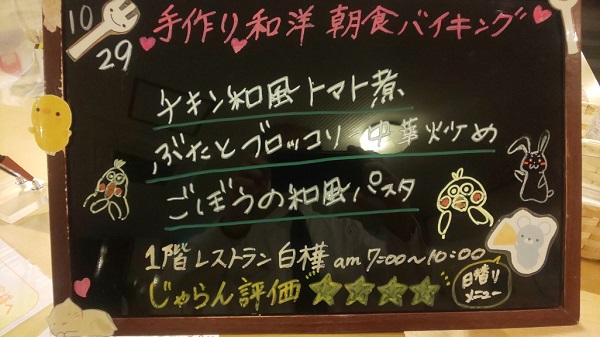 10
29
手作り和洋朝食バイキング
チキン和風トマト煮
ぶたとブロッコリー中華炒め
ごぼうの和風パスタ
1階レストラン白樺 am 7:00～10:00
じゃらん評価 ★★★★
日替り
メニュー